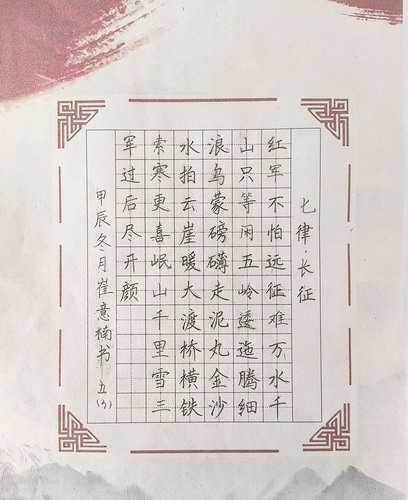 七律·长征
红军不怕远征难万水千
山只等闲五岭逶迤腾细
浪乌蒙磅礴走泥丸金沙
水拍云崖暖大渡桥横铁
索寒更喜岷山千里雪三
军过后尽开颜
甲辰冬月崔意楠书 五(3)